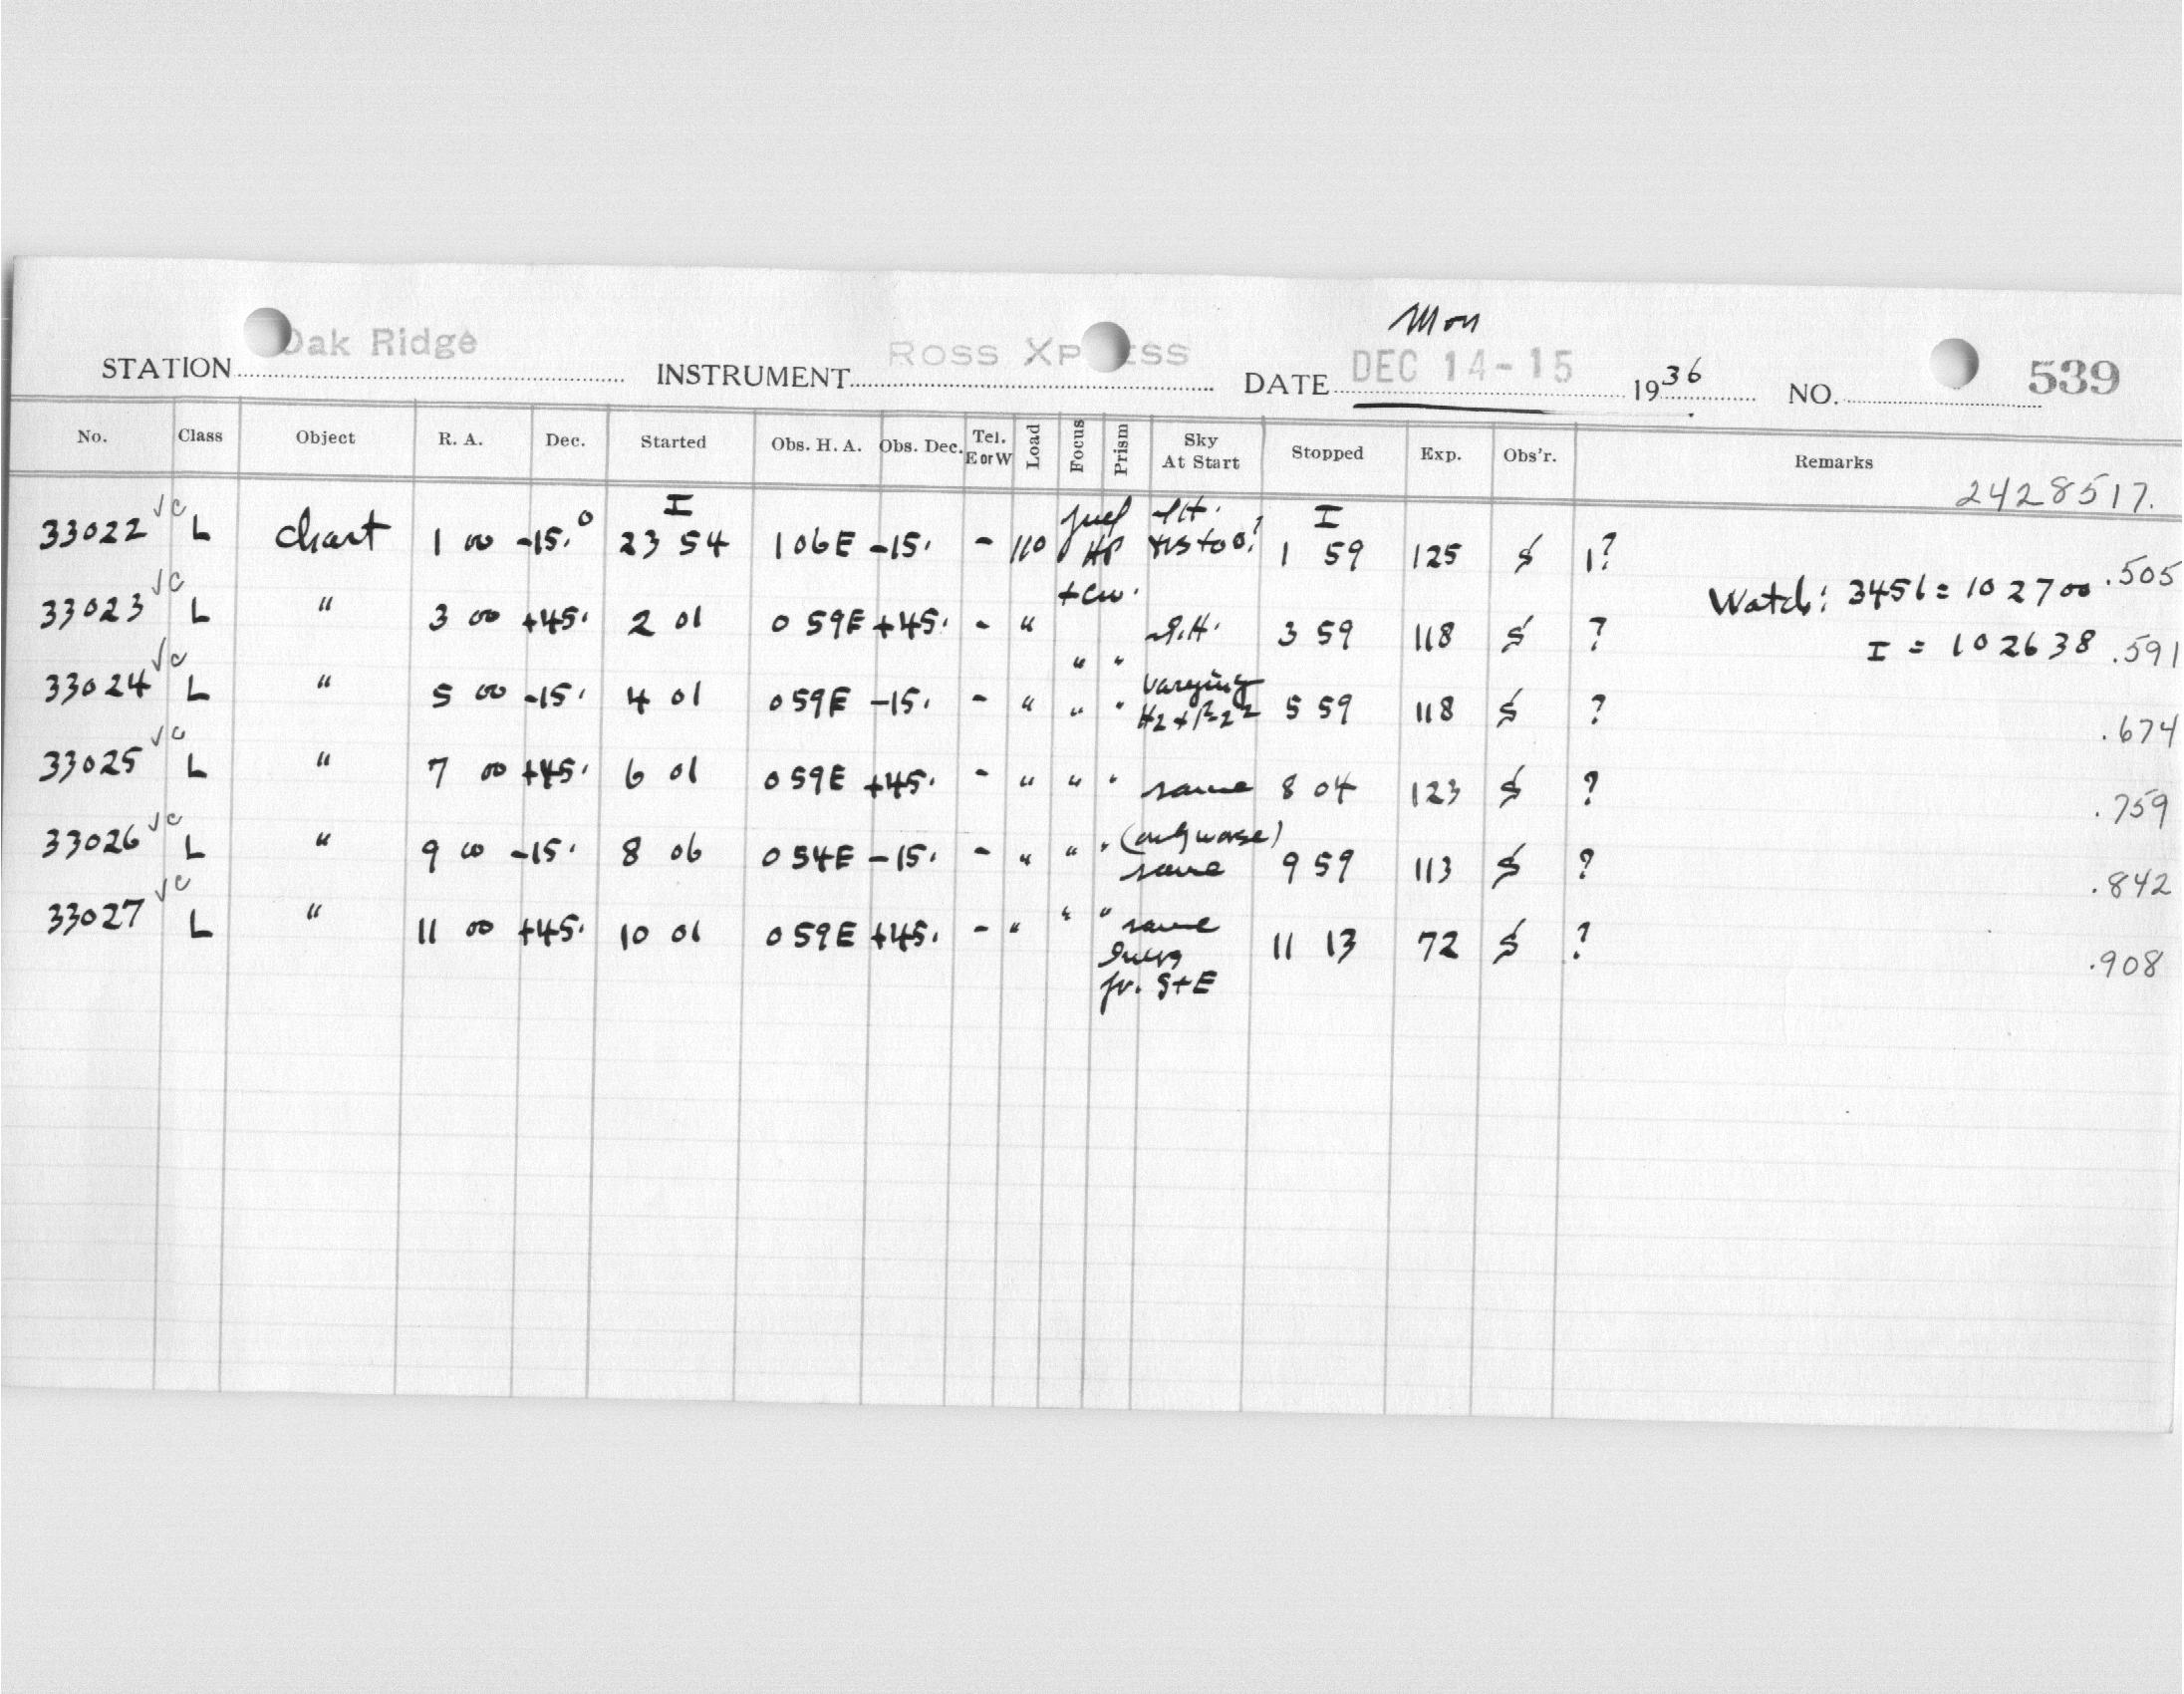 Mon
STATION Oak Ridge INSTRUMENT ROSS XP ESS DATE DEC 14-15 1936 NO. 539
No. Class Object R. A. Dec. Started Obs. H. A. Obs. Dec. Tel. E or W Load Focus Prism Sky At Start Stopped Exp. Obs'r. Remarks
2428517.
33022 √c L chart 1 00 -15.° I 23 54 1 06E -15. - 110 I 1 59 125 1? .505
Watch: 3451 = 10 27 00
33023 √c L " 3 00 +45. 2 01 0 59E +45. - " 3 59 118 ? .591
I = 10 26 38
33024 √c L " 5 00 -15. 4 01 0 59E -15. - " " " varying 5 59 118 ? .674
33025 √c L " 7 00 +45. 6 01 0 59E +45. - " " " same 8 04 123 ? .759
33026 √c L " 9 00 -15. 8 06 0 54E -15. - " " " (only worse) same 9 59 113 ? .842
33027 √c L " 11 00 +45. 10 01 0 59E +45. - " " " same 11 13 72 ? .908
fr. S+E